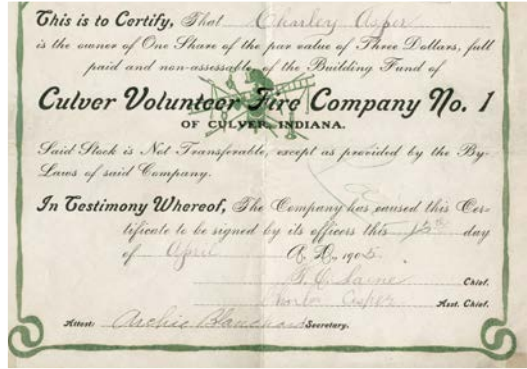 This is to Certify, That Charley Asper
is the owner of One Share of the par value of Three Dollars, full
paid and non-assessable, of the Building Fund of
Culver Volunteer Fire Company No. 1
OF CULVER, INDIANA.
Said Stock is Not Transferable, except as provided by the By-
Laws of said Company.
In Testimony Whereof, The Company has caused this Cer-
tificate to be signed by its officers this 15th day
of April A. D., 1905
Chief.
Asper Asst. Chief.
Attest: Archie Blanchard Secretary.